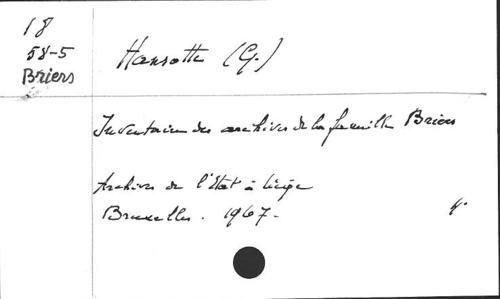 18
58-5
Briers
Hansotte (G.)
Inventaire des archives de la famille Briers
Archives de l'Etat à Liège
Bruxelles. 1967.